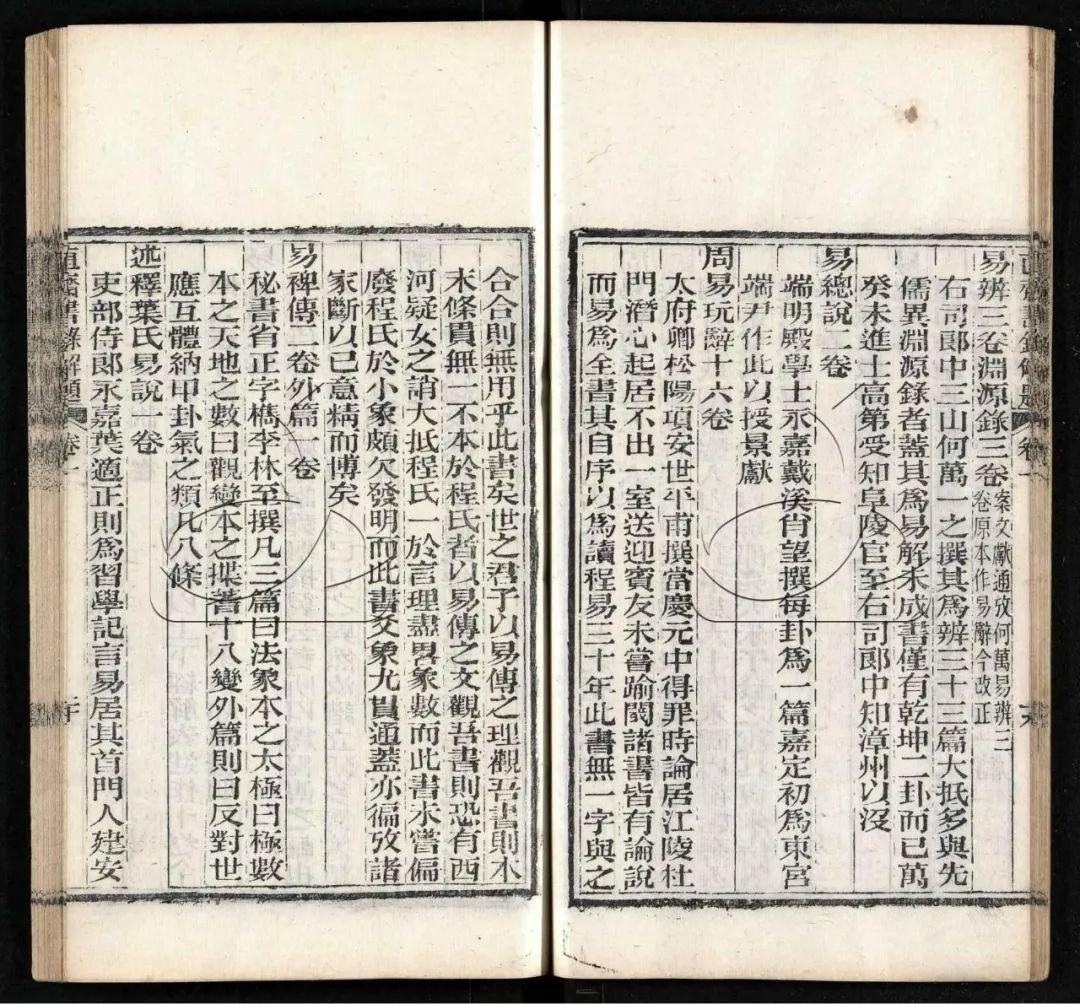 直齋書錄解題 卷一
易辨三卷淵源錄三卷 案文獻通攷何萬易辨三卷原本作易辭今改正
右司郞中三山何萬一之撰其爲辨三十三篇大抵多與先
儒異淵源錄者蓋其爲易解未成書僅有乾坤二卦而已萬
癸未進士高第受知阜陵官至右司郞中知漳州以沒
易總說二卷
端明殿學士永嘉戴溪肖望撰每卦爲一篇嘉定初爲東宮
端尹作此以授景獻
周易玩辭十六卷
太府卿松陽項安世平甫撰當慶元中得罪時論居江陵杜
門潛心起居不出一室送迎賓友未嘗踰閾諸書皆有論說
而易爲全書其自序以爲讀程易三十年此書無一字與之
合合則無用乎此書矣世之君子以易傳之理觀吾書則本
末條貫無一不本於程氏者以易傳之文觀吾書則恐有西
河疑女之誚大抵程氏一於言理盡畧象數而此書未嘗偏
廢程氏於小象頗欠發明而此書爻象尤貫通蓋亦徧攷諸
家斷以己意精而博矣
易裨傳二卷外篇一卷
秘書省正字檇李林至撰凡三篇曰法象本之太極曰極數
本之天地之數曰觀變本之揲蓍十八變外篇則曰反對世
應互體納甲卦氣之類凡八條
述釋葉氏易說一卷
吏部侍郞永嘉葉適正則爲習學記言易居其首門人建安
直齋書錄解題 卷一